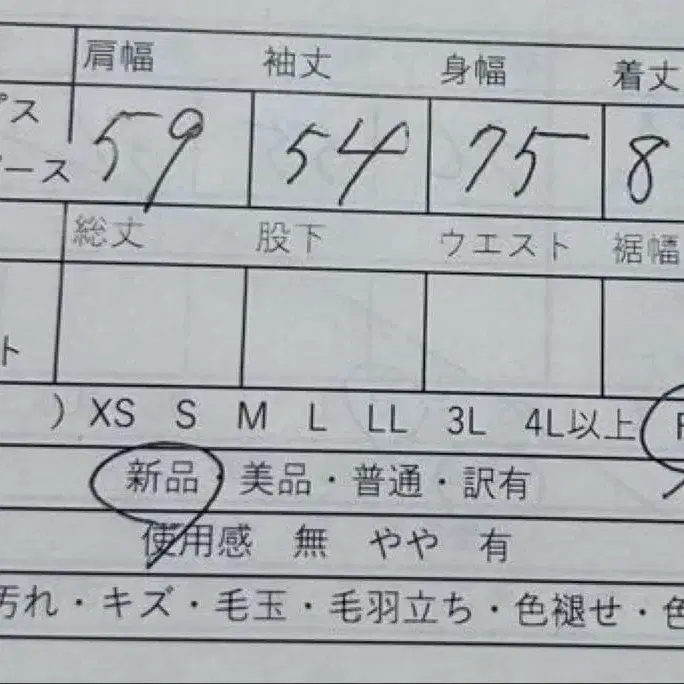 肩幅 袖丈 身幅 着丈
プス
ース 59 54 75 8
総丈 股下 ウエスト 裾幅
ト
) XS S M L LL 3L 4L以上 F
新品 美品・普通・訳有
使用感 無 やや 有
汚れ・キズ・毛玉・毛羽立ち・色褪せ・色